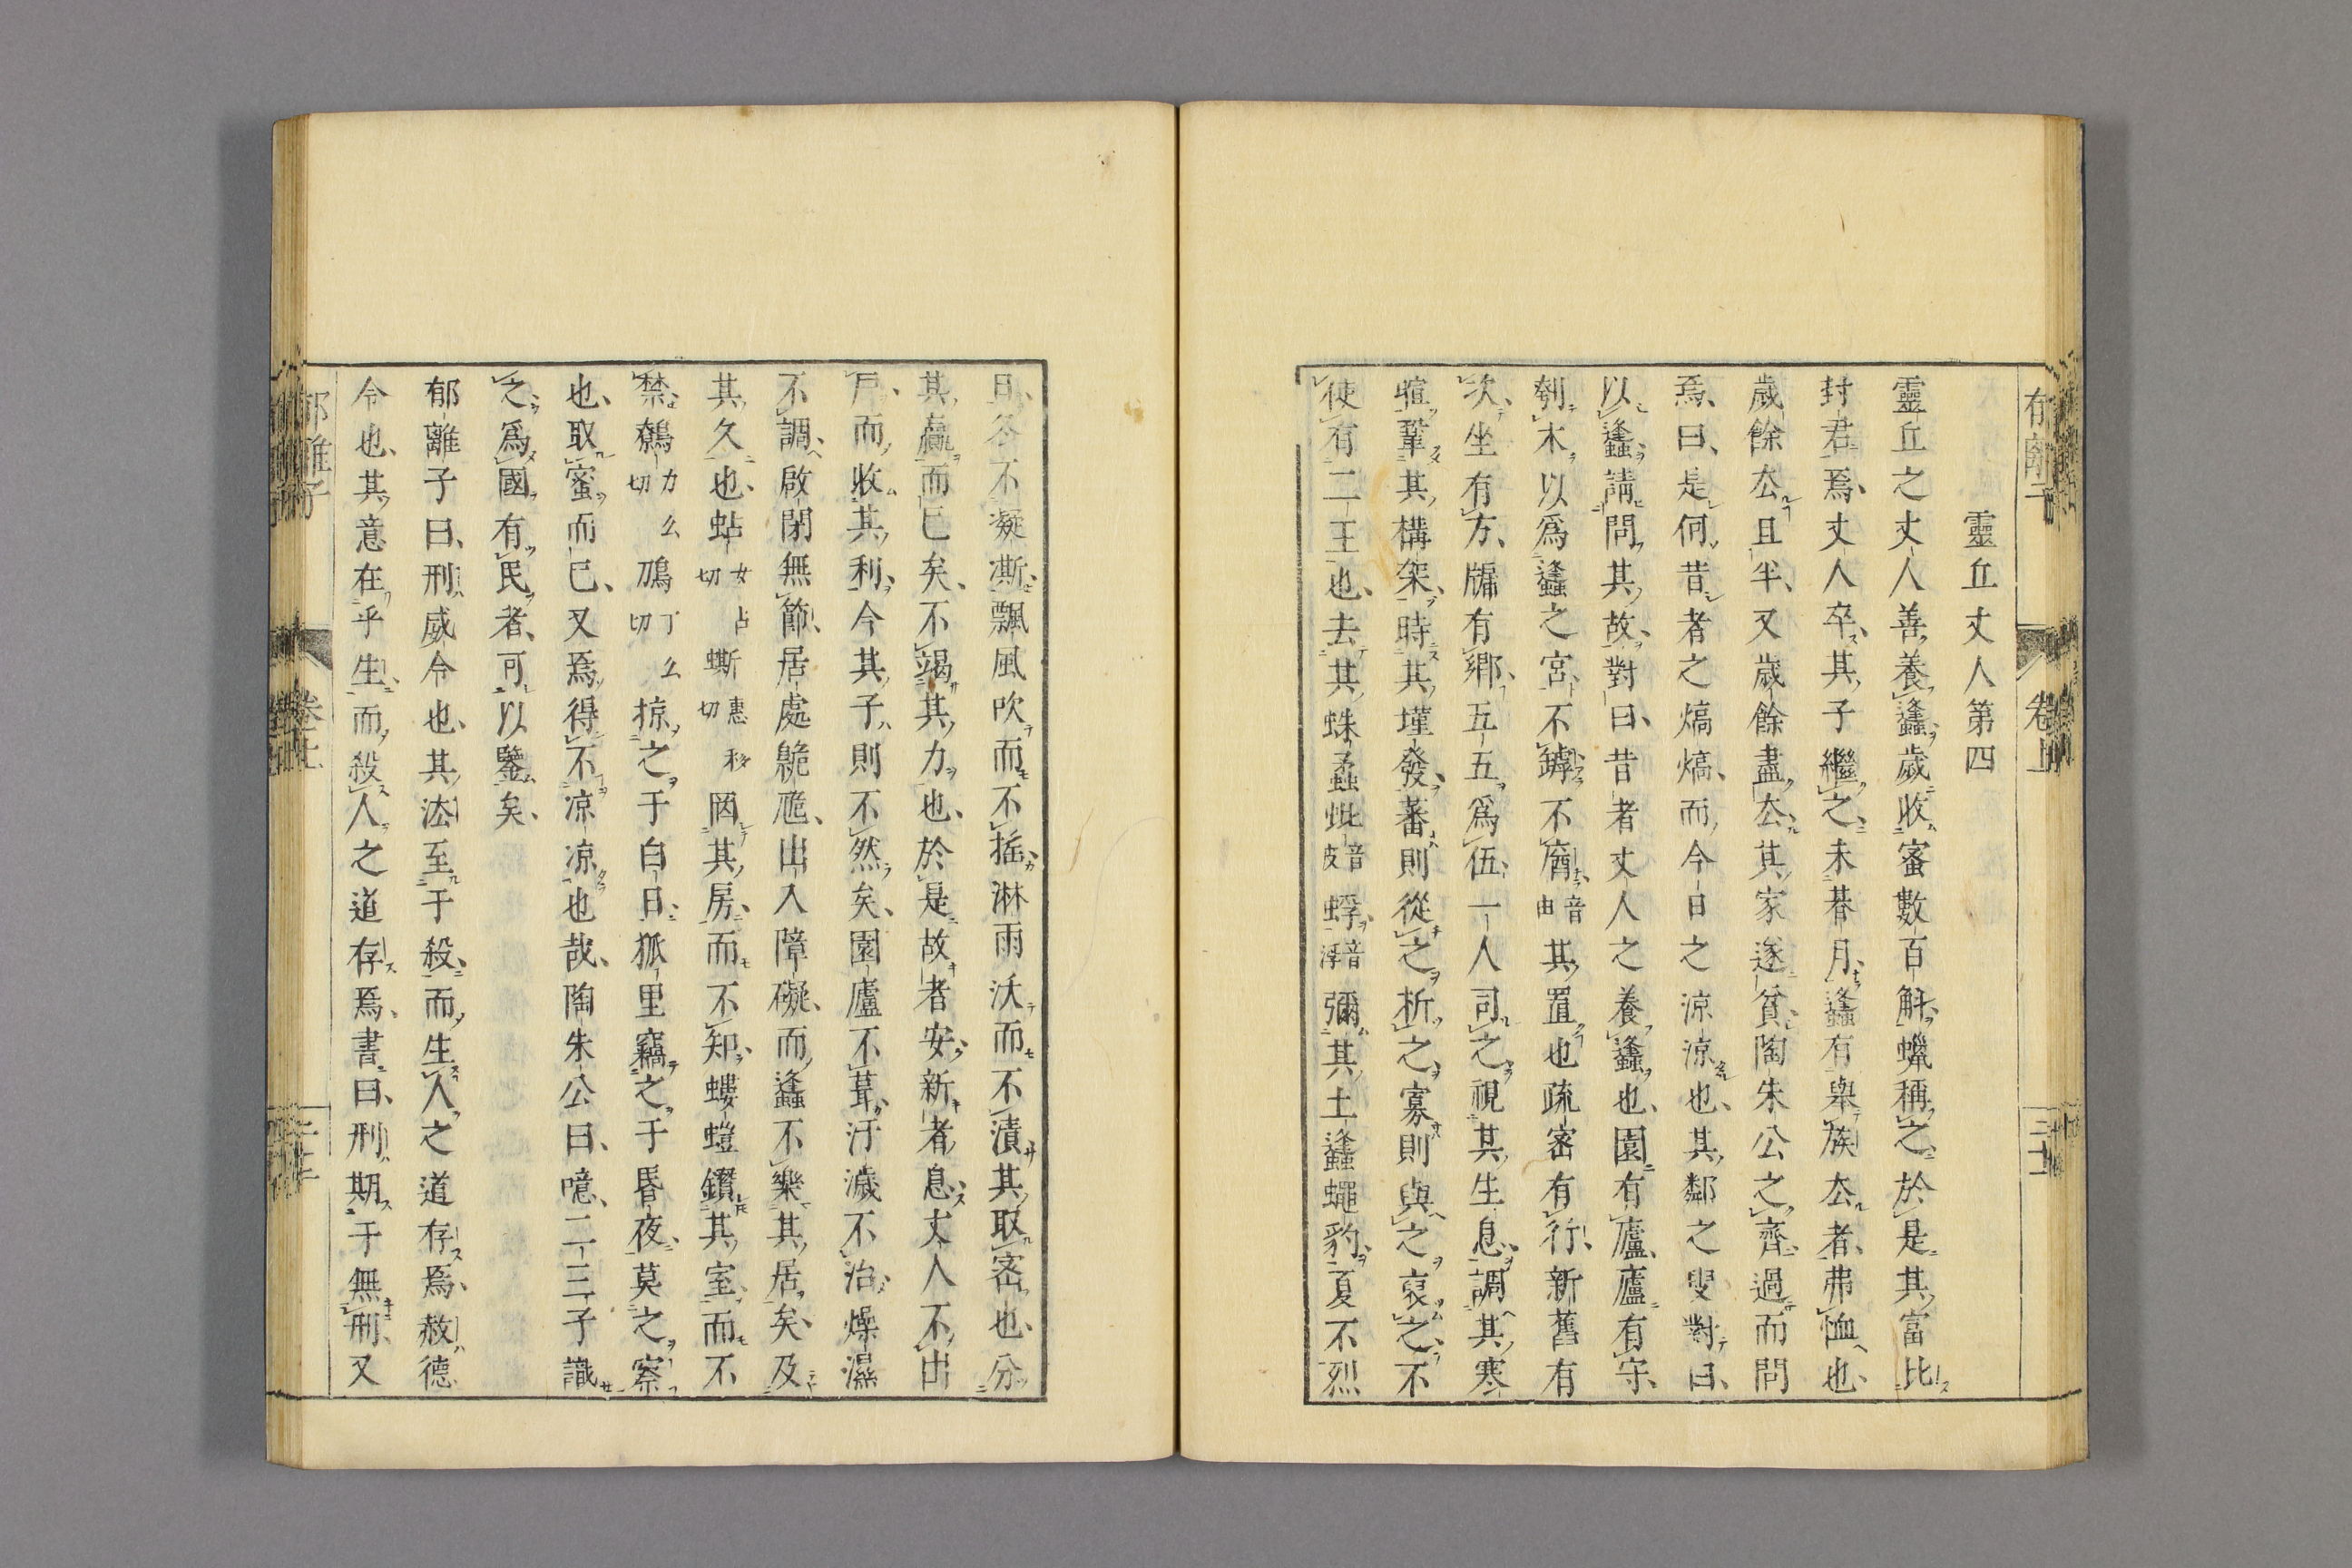 靈丘丈人第四
靈丘之丈人善養蠭歲收蜜數百斛蠟稱之於是其富比
封君焉丈人卒其子繼之未朞月蠭有擧族厺者弗恤也
歲餘厺且半又歲餘盡厺其家遂貧陶朱公之齊過而問
焉曰是何昔者之熇熇而今日之涼涼也其鄰之叟對曰
以蠭請問其故對曰昔者丈人之養蠭也園有廬廬有守
刳木以爲蠭之宮不罅不庮音由其置也疏密有行新舊有
次坐有方牖有鄉五五爲伍一人司之視其生息調其寒
暄鞏其構架時其墐發蕃則從之析之寡則與之裒之不
使有二王也去其蛛蟊蚍音皮蜉音浮彌其土蠭蠅豹夏不烈
日冬不凝澌飄風吹而不搖淋雨沃而不漬其取密也分
其贏而已矣不竭其力也於是故者安新者息丈人不出
戶而收其利今其子則不然矣園廬不葺汙濊不治燥濕
不調啟閉無節居處臲卼出入障礙而蠭不樂其居矣及
其久也蛅女占切蟖惠移切罔其房而不知螻螘鑽其室而不
禁鷯力么切鳭丁么切掠之于白日狐貍竊之于昏夜莫之察
也取蜜而已又焉得不涼涼也哉陶朱公曰噫二三子識
之爲國有民者可以鑒矣
郁離子曰刑威令也其法至于殺而生人之道存焉赦德
令也其意在乎生而殺人之道存焉書曰刑期于無刑又
郁離子
卷上